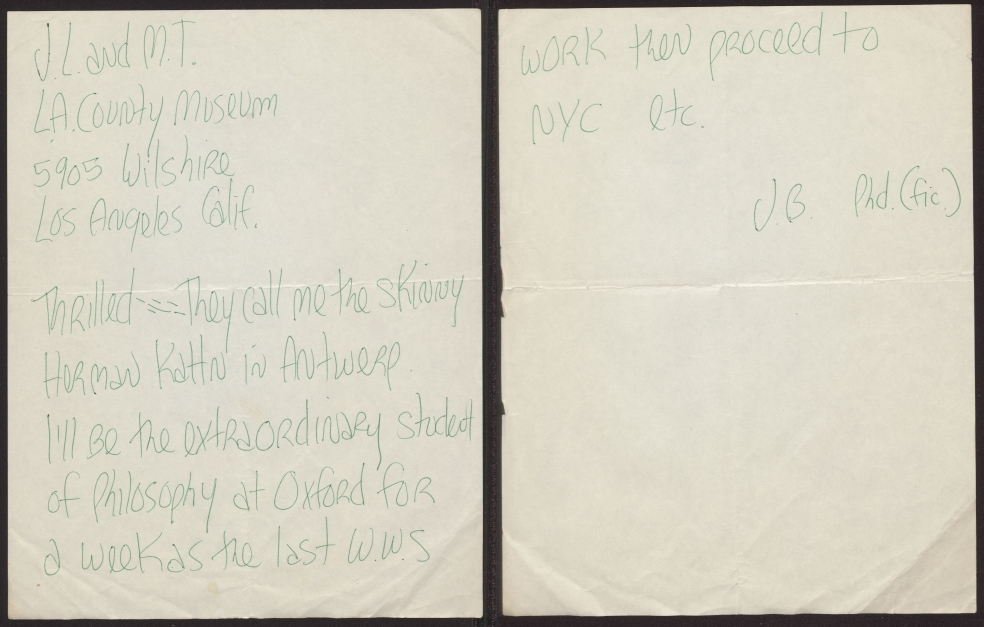 J.L. and M.T.
L.A. County Museum
5905 Wilshire
Los Angeles Calif.
Thrilled == They call me the skinny
Herman Kahn in Antwerp.
I'll be the extraordinary student
of Philosophy at Oxford for
a week as the last W.W.S
work then proceed to
NYC etc.
J.B. Phd. (fic.)